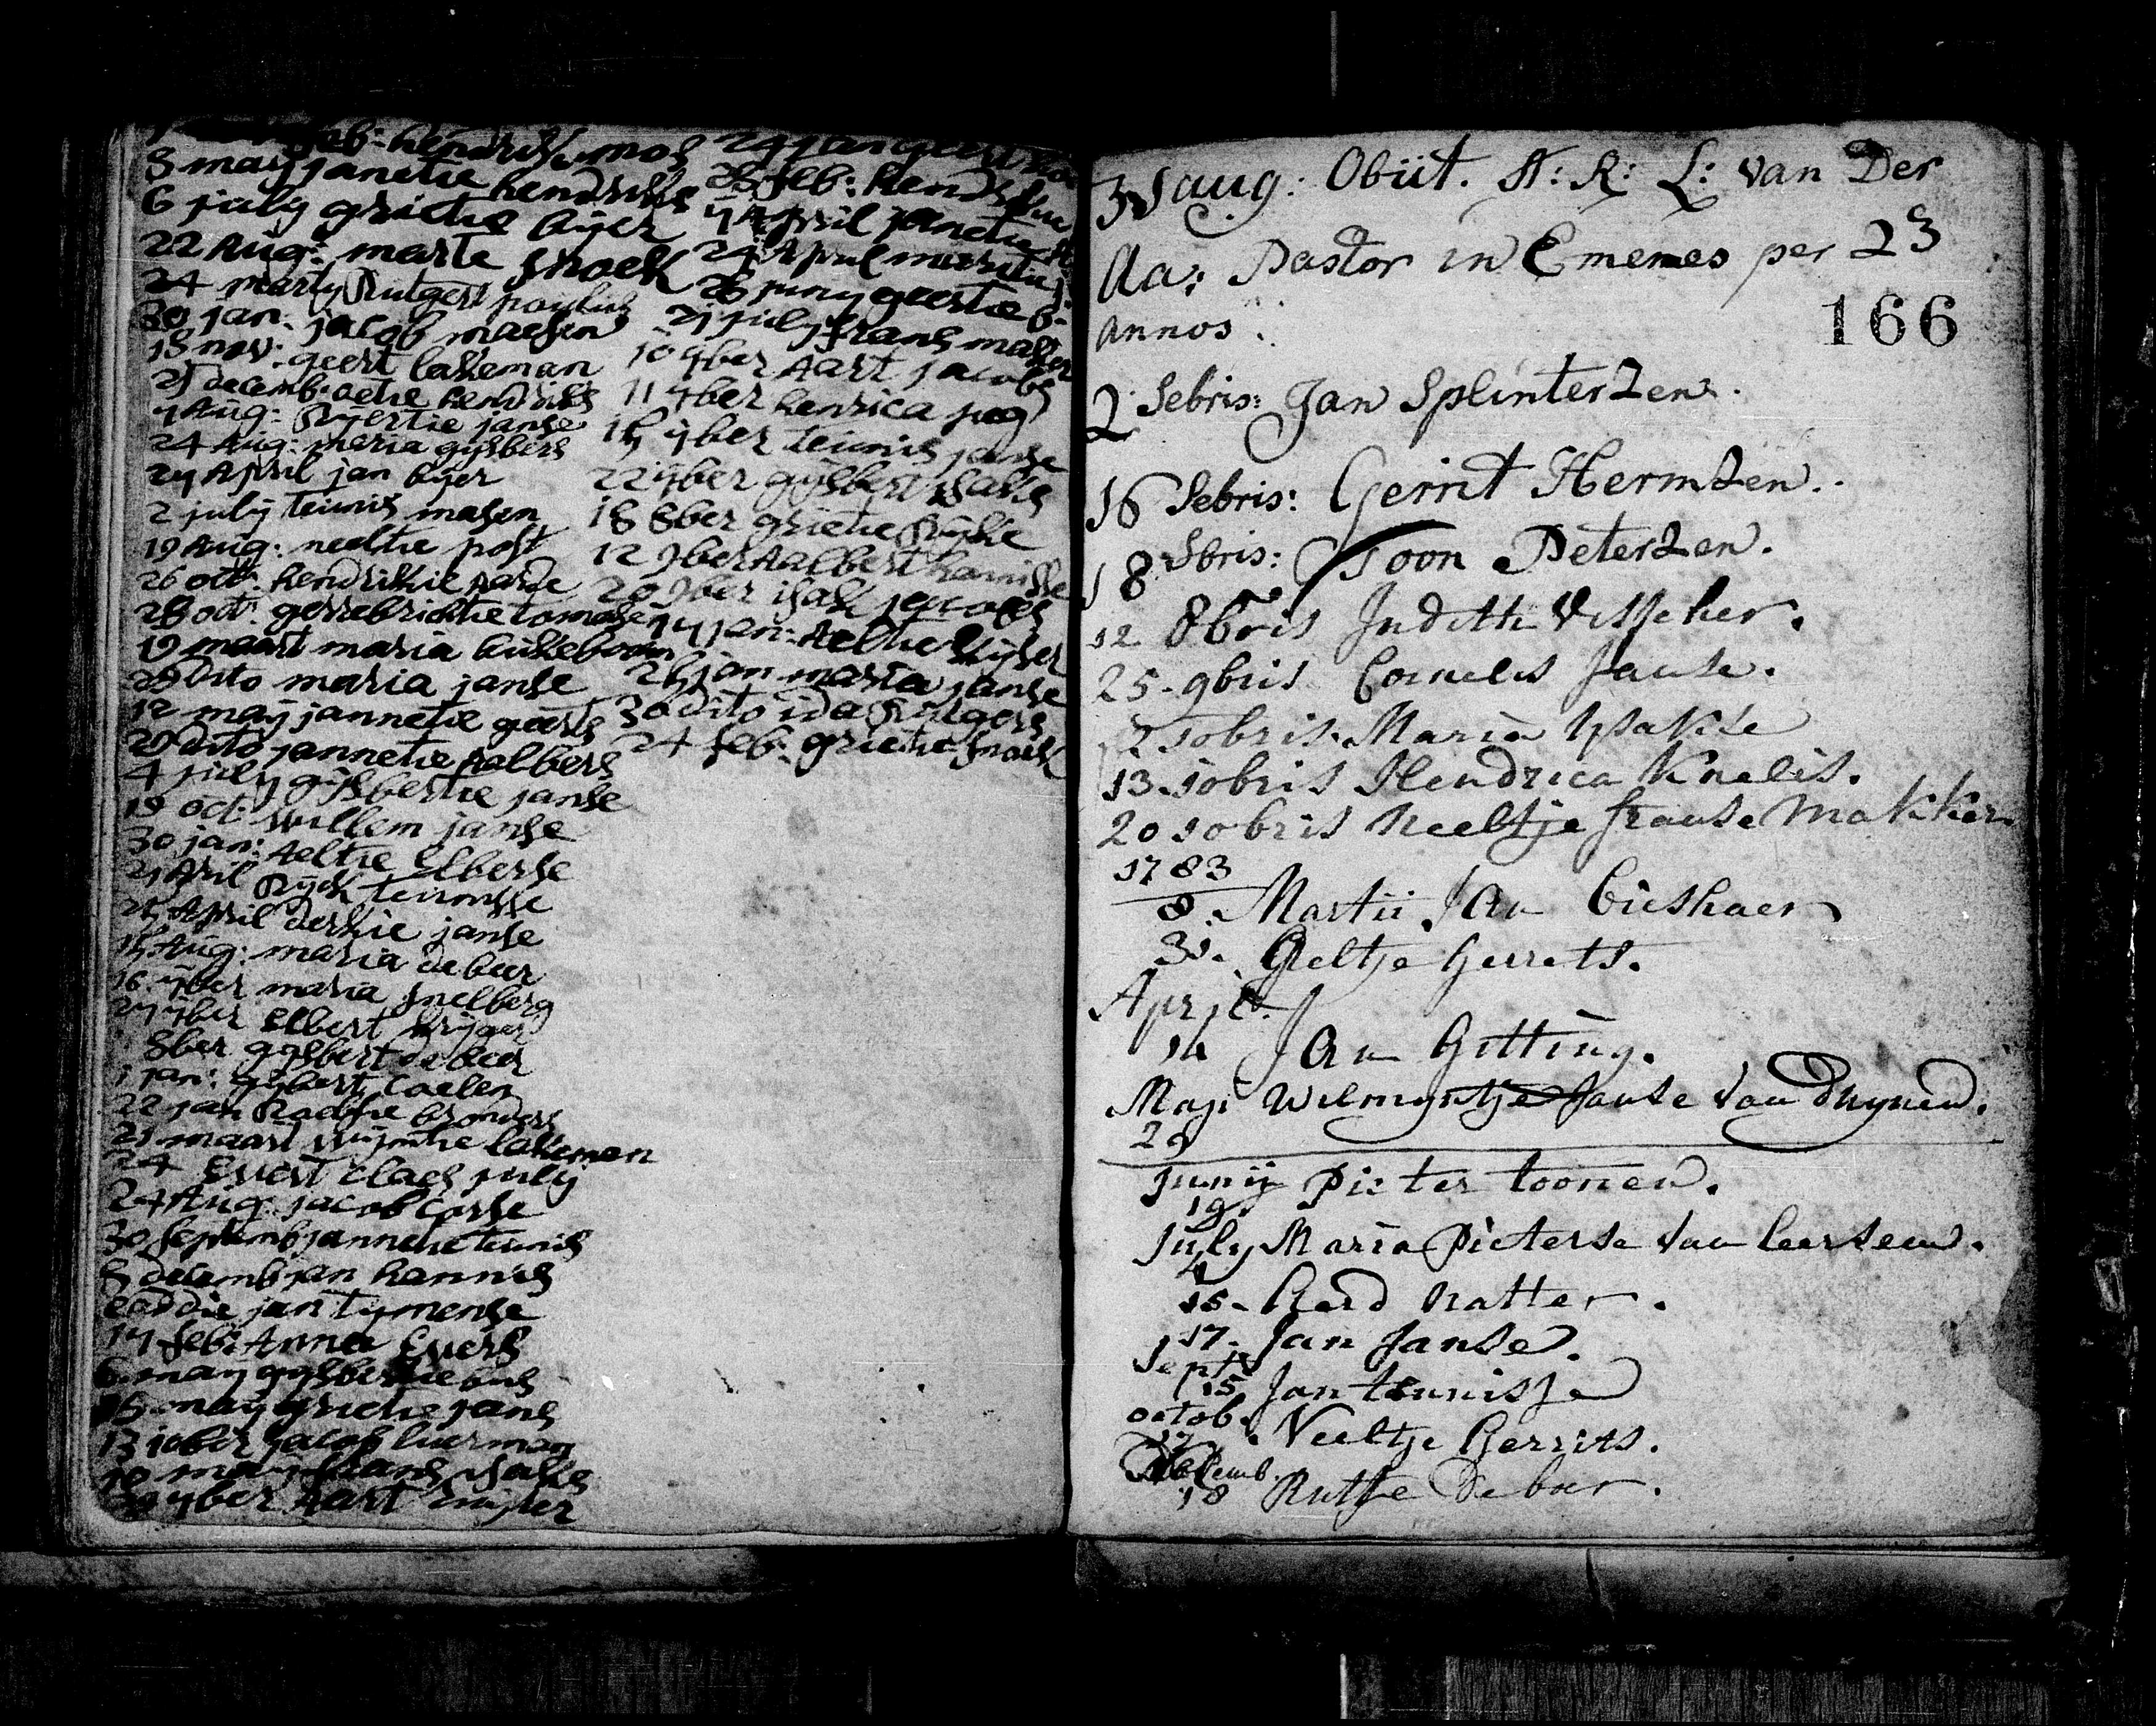 feb: hendrik mos
3 maij janetie hendriks
6 july grietie Aijer
22 Aug: marte snoek
24 marty Rutgert paulus
30 jan: jacob maesen
18 nov: geert lakeman
25 decemb: aetie hendriks
7 Aug: Rijertie janse
24 Aug: maria gijsbers
27 April jan bijer
2 july teunis masen
19 Aug: neeltie post
26 oct: hendrikie
28 oct: gerrebrichtie tomasen
19 maart maria bukeboom
29 dito maria janse
12 maij jannetie geerts
29 dito jannetie Aalbers
4 july gijsbertie janse
19 oct: willem janse
30 jan: Aeltie Elberse
21 April Rijck teunisse
25 April derkie janse
15 Aug: maria de beer
16 7ber maria snelberg
27 7ber Elbert krijger
8ber gijsbert de beer
jan: gijbert Coelen
22 jan
21 maart wijmtie lakeman
24 Evert claes july
24 Aug: jacob Corse
30 septemb jannetie teunis
8 decemb jan hannis
eoddie jan tijmense
17 feb: Anna Evers
6 maij gijsbertie
16 maij grietie jans
13 10ber jacob
18 maij frans isakse
30 7ber Aart
24 jan geert
25 feb: hendr
7 April janetie
24 April marritie
26 juny geertie b.
21 july frans maker
10 7ber Aart jacobs
11 7ber henrica
15 7ber teunis janse
22 7ber gijsbert isaks
18 8ber grietie Rijke
12 9ber Aalbert hannisse
20 9ber isak jacobs
17 jan: Aeltie
25 jan maria janse
30 dito ida Rutgers
24 feb: grietie snoek
31 aug: Obiit. A: R: L: van Der
Aa: Pastor in Ememes per 23
annos.
166
2 7ebris: Jan Splinterzen.
16 7ebris: Gerrit Hermzen.
18 8bris: Toon Peterzen.
12 8bris Judith Visscher.
25 - 9bris Cornelis Janse.
2 10bris. Maria Ysakse
13. 10bris Hendrica Knelis.
20 10bris Neeltje franse Makker
1783
8. Martii Jan
31. Geltje Gerrets.
April.
14 Jan Gitting.
Maji Wilmyntje Janse van Dhynen.
29
Junij Pieter toonen.
19.
July Maria Pieterse van leersem.
4
15. Gerd Natter.
17. Jan Janse.
Sept
15. Jan tennisse
octob. Neeltje Gerrits.
17
Decemb.
18 Rutje De boer.